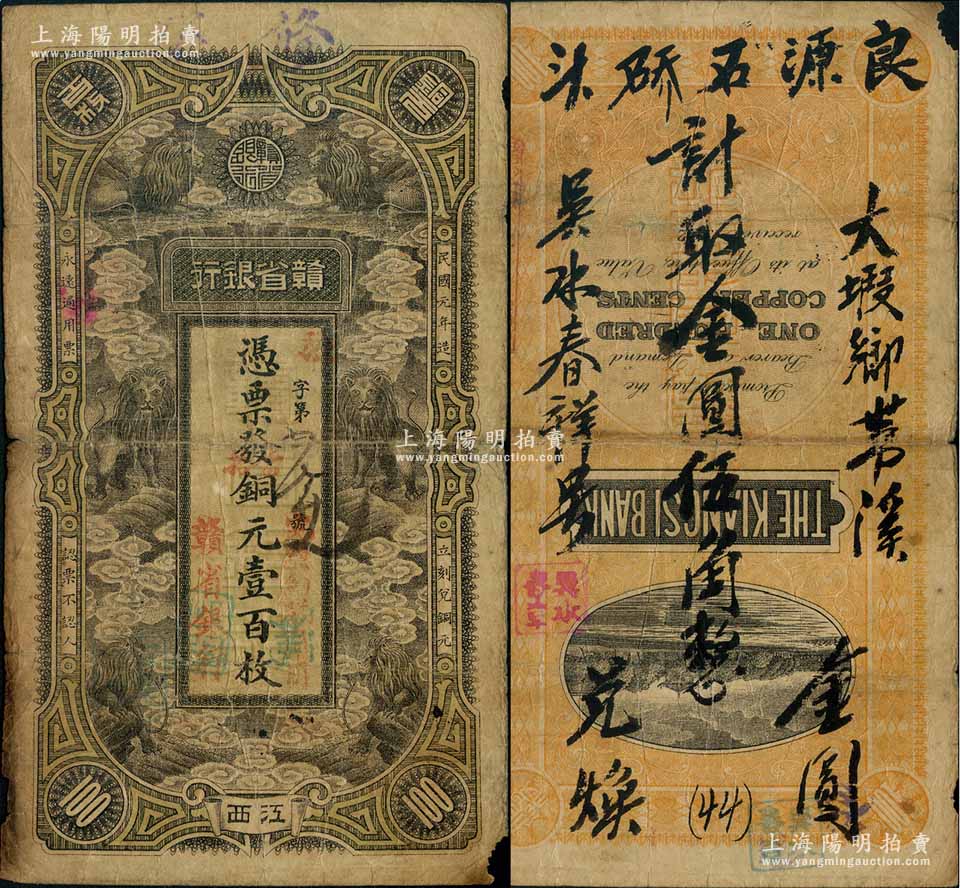 上海陽明拍賣
www.yangmingauction.com
贛省銀行
贛省銀行
民國元年造
永遠通用票
立刻兌銅元
認票不認人
字第
號
憑票發銅元壹百枚
贛省銀行
100
100
江西
良源石硚头
大塅鄉苐溪
計取金圓伍角整
吴水春祥号
金圓
兑焕
(44)
THE KIANGSI BANK
Promise to pay the
Bearer on Demand
ONE HUNDRED
COPPER CENTS
at its Office the Value
received
上海陽明拍賣
www.yangmingauction.com
上海陽明拍賣
www.yangmingauction.com